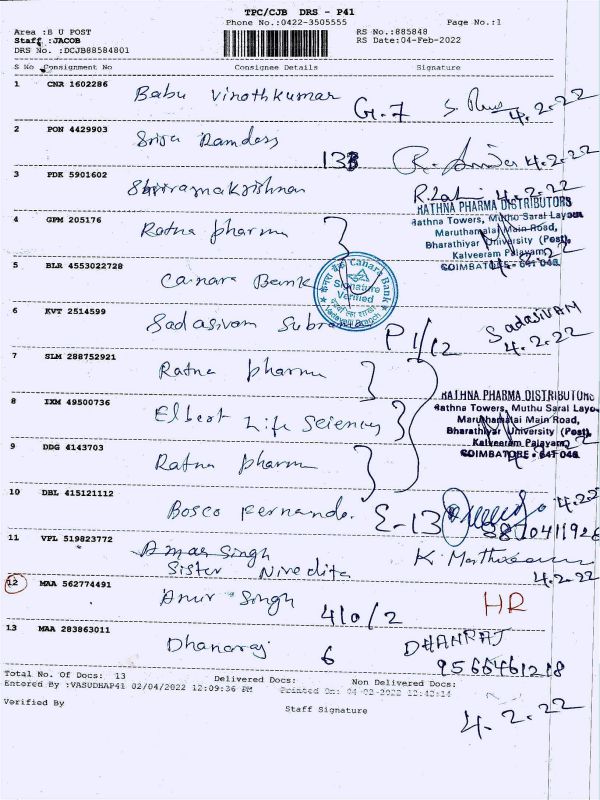 TPC/CJB DRS - P41
Phone No.:0422-3505555
Page No.:1
Area :B U POST
RS No.:885848
Staff :JACOB
RS Date:04-Feb-2022
DRS No. :DCJB88584801
S No Consignment No Consignee Details Signature
1 CNR 1602286 Babu Vinothkumar G.7 4.2.22
2 PON 4429903 Ramdoss 4.2.22
3 PDK 5901602 Shriramakrishnan 4.2.22
RATHNA PHARMA DISTRIBUTORS
Rathna Towers, Muthu Saral Layout
Maruthamalai Main Road,
Bharathiyar University (Post),
Kalveeram Palayam,
COIMBATORE - 641 046.
4 GPM 205176 Ratna pharma
5 BLR 4553022728 Canara Bank
Canara Bank
Signature
Verified
6 KVT 2514599 Sadasivam P1/12 SadasivAM
4.2.22
7 SLM 288752921 Ratna pharma
RATHNA PHARMA DISTRIBUTORS
Rathna Towers, Muthu Saral Layo
Maruthamalai Main Road,
Bharathiyar University (Post),
Kalveeram Palayam,
COIMBATORE - 641 046
8 IXM 49500736 Elbert Life Sciences
9 DDG 4143703 Ratna pharma
10 DBL 415121112 Bosco fernando. E-13
11 VPL 519823772 Amar Singh
Sister Nivedita
4.2.22
12 MAA 562774491 Anur Singh 410/2 HR
13 MAA 283863011 Dhanaraj 6 DHANRAJ
9566461218
Total No. Of Docs: 13 Delivered Docs: Non Delivered Docs:
Entered By :VASUDHAP41 02/04/2022 12:09:36 PM Printed On: 04-02-2022 12:42:14
Verified By
Staff Signature
4.2.22